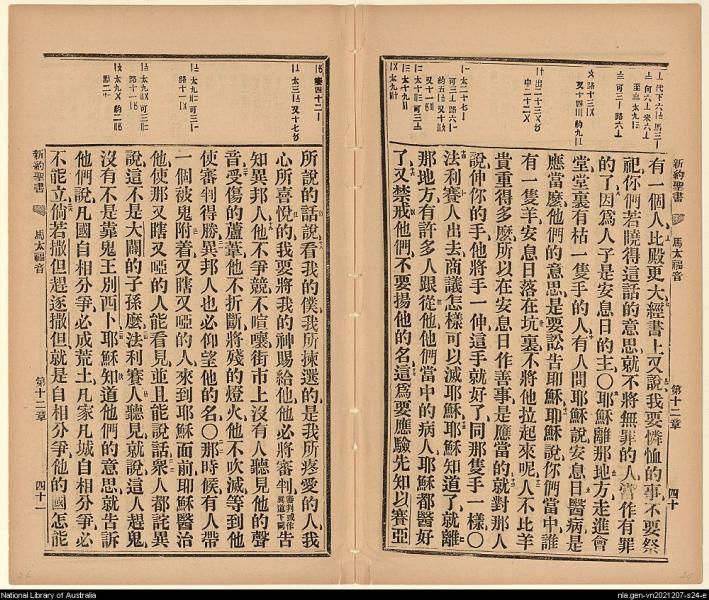 新約聖書
馬太福音
第十二章
四十
有一個人比殿更大經書上又說我要憐恤的事不要祭
祀你們若曉得這話的意思就不將無罪的人當作有罪
的了因爲人子是安息日的主○耶穌離那地方走進會
堂裏有枯一隻手的人有人問耶穌說安息日醫病是
應當麽他們的意思是要訟告耶穌耶穌說你們當中誰
有一隻羊安息日落在坑裏不將他拉起來呢人不比羊
貴重得多麽所以在安息日作善事是應當的就對那人
說伸你的手他將手一伸這手就好了同那隻手一樣○
法利賽人出去商議怎樣可以滅耶穌耶穌知道了就離
那地方有許多人跟從他他們當中的病人耶穌都醫好
了又禁戒他們不要揚他的名這爲要應驗先知以賽亞
所說的話說看我的僕我所揀選的是我所疼愛的人我
心所喜悅的我要將我的神賜給他他必將審判審判或作眞道下同告
知異邦人他不爭競不喧嚷街市上沒有人聽見他的聲
音受傷的蘆葦他不折斷將殘的燈火他不吹滅等到他
使審判得勝異邦人也必仰望他的名○那時候有人帶
一個被鬼附着又瞎又啞的人來到耶穌面前耶穌醫治
他使那又瞎又啞的人能看見並且能說話衆人都詫異
說這不是大闢的子孫麽法利賽人聽見就說這人趕鬼
沒有不是靠鬼王別西卜耶穌知道他們的意思就告訴
他們說凡國自相分爭必成荒土凡家凡城自相分爭必
不能立倘若撒但趕逐撒但就是自相分爭他的國怎能
新約聖書
馬太福音
第十二章
四十一
National Library of Australia
nla.gen-vn2021207-s24-e